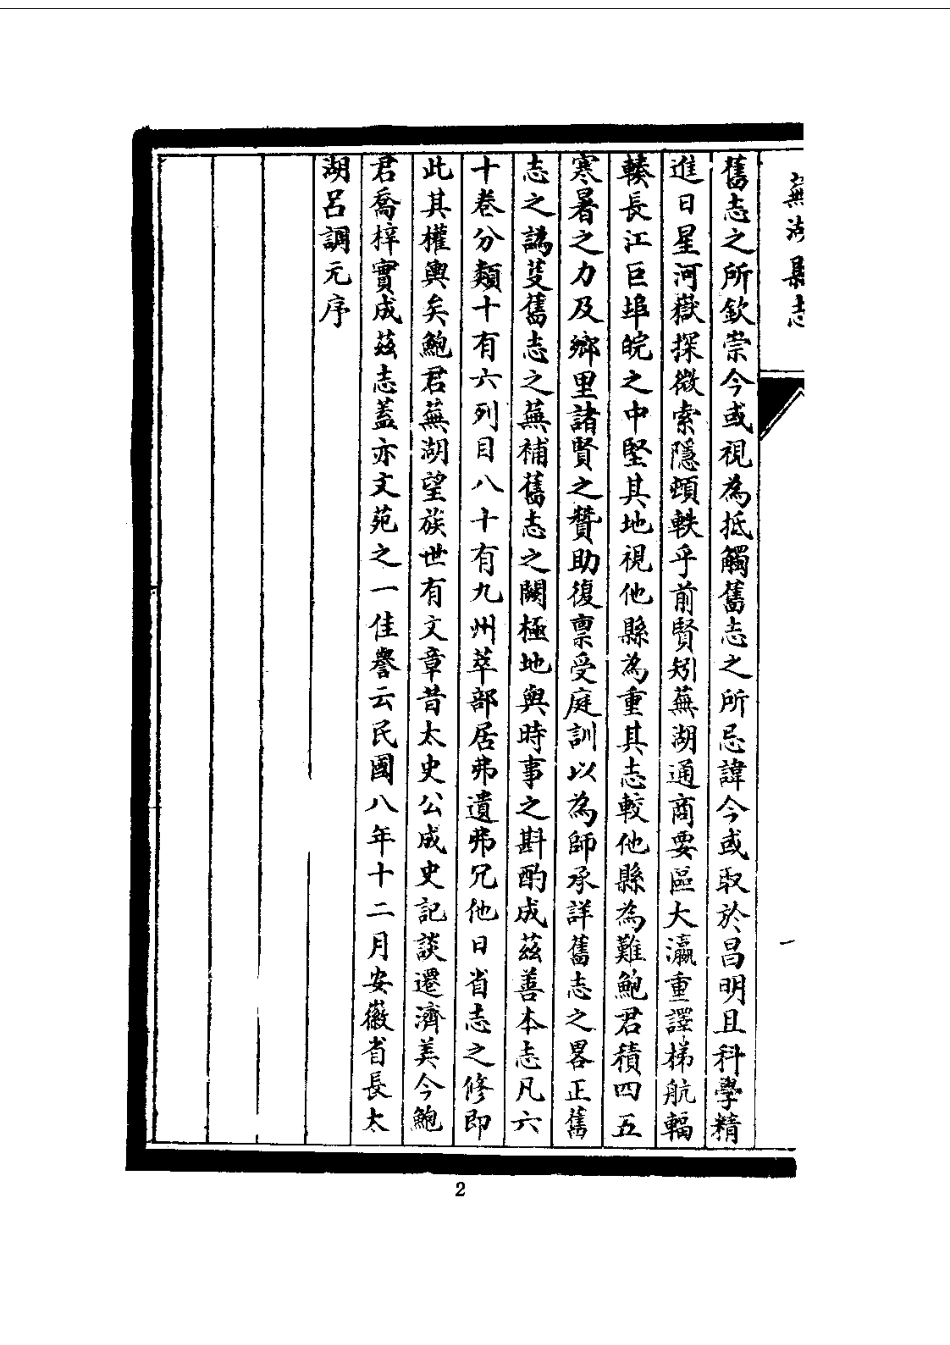 蕪湖縣志
一
舊志之所欽崇今或視為抵觸舊志之所忌諱今或取於昌明且科學精
進日星河嶽探微索隱頌軼乎前賢矧蕪湖通商要區大瀛重譯梯航輻
輳長江巨埠皖之中堅其地視他縣為重其志較他縣為難鮑君積四五
寒暑之力及鄉里諸賢之贊助復稟受庭訓以為師承詳舊志之畧正舊
志之譌芟舊志之蕪補舊志之闕極地與時事之斟酌成茲善本志凡六
十卷分類十有六列目八十有九州萃部居弗遺弗冗他日省志之修即
此其權輿矣鮑君蕪湖望族世有文章昔太史公成史記談遷濟美今鮑
君喬梓實成茲志蓋亦文苑之一佳譽云民國八年十二月安徽省長太
湖呂調元序
2